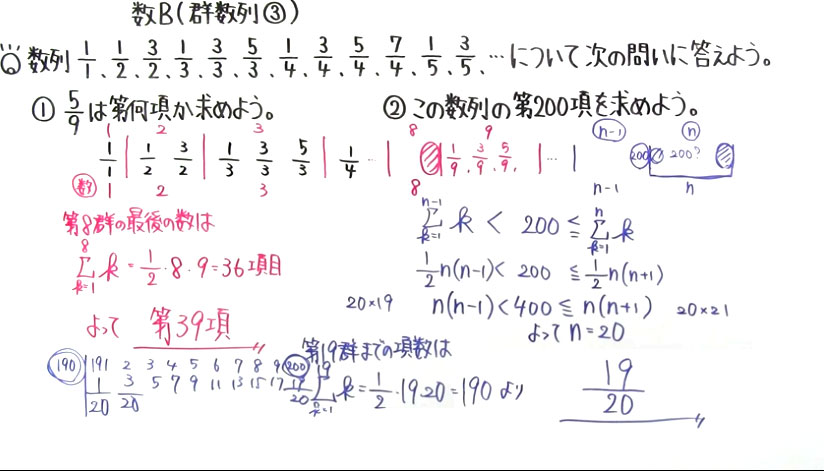 数B(群数列③)
数列 1/1、1/2、3/2、1/3、3/3、5/3、1/4、3/4、5/4、7/4、1/5、3/5、… について次の問いに答えよう。
① 5/9 は第何項か求めよう。
1 2 3 8 9
1/1 | 1/2 3/2 | 1/3 3/3 5/3 | 1/4 … | | 1/9、3/9、5/9、 | … |
数 1 2 3 8
第8群の最後の数は
8Σk=1 k = 1/2・8・9 = 36項目
よって 第39項
② この数列の第200項を求めよう。
n-1 n
200 200?
n-1 n
n-1Σk=1 k < 200 ≦ nΣk=1 k
1/2 n(n-1) < 200 ≦ 1/2 n(n+1)
20×19 n(n-1) < 400 ≦ n(n+1) 20×21
よって n=20
第19群までの項数は
19Σk=1 k = 1/2・19・20 = 190 より
19/20
190 | 191 2 3 4 5 6 7 8 9 200
1/20 3/20 5 7 9 11 13 15 17 19/20